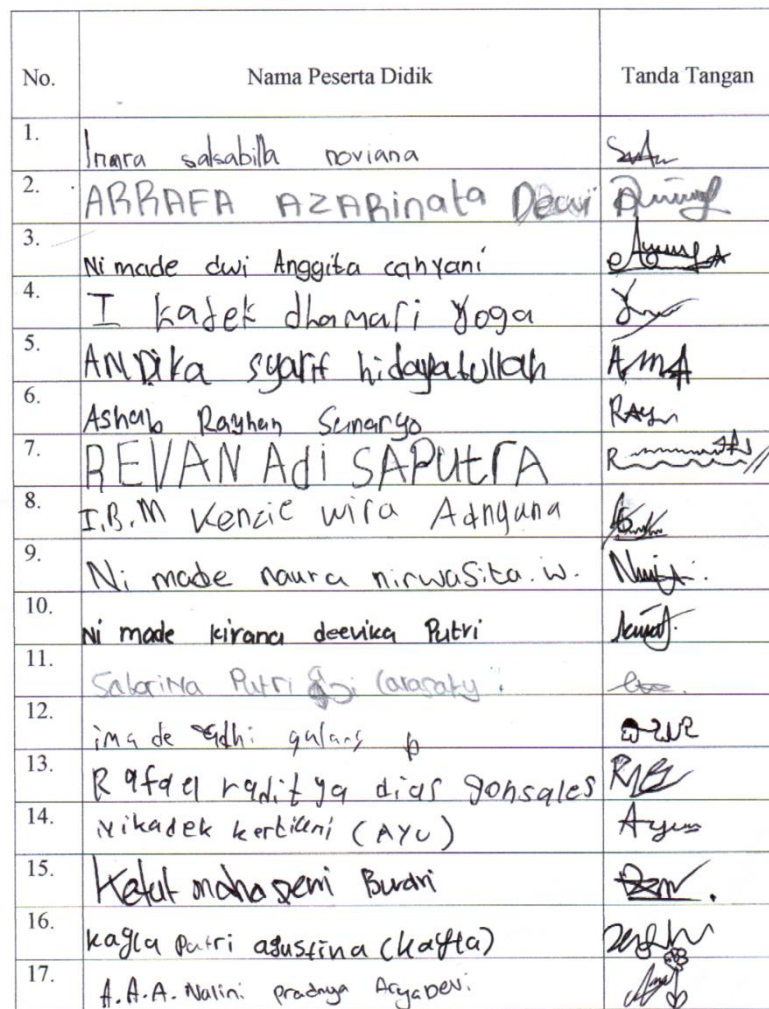 No. Nama Peserta Didik Tanda Tangan
1. Inara salsabilla noviana
2. ARRAFA AZARinata Dewi
3. Ni made dwi Anggita cahyani
4. I kadek dhamari Yoga
5. ANDika syarif hidayatullah AMA
6. Ashab Rayhan Sunaryo RAY
7. REVAN Adi SAPUtRA
8. I.B.M Kenzie wira Adnyana
9. Ni made naura nirwaSita. w.
10. Ni made kirana deevika Putri
11. Sabrina Putri
12. imade adhi galang p
13. Rafael raditya dias gonsales
14. nikadek kertiani (AYU) Ayu
15. Ketut maha
16. kayla putri agustina (kayla)
17. A.A.A. Nalini pradnya AryaDevi